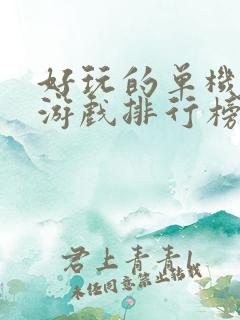 好玩的单机
游戏排行榜
君上青青l
未经同意禁止转载